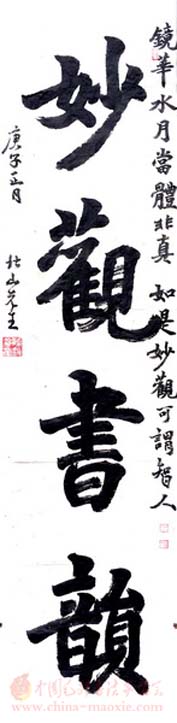 鏡華水月當體非真 如是妙觀可謂智人
妙觀書韻
庚子正月
www.china-maoxie.com